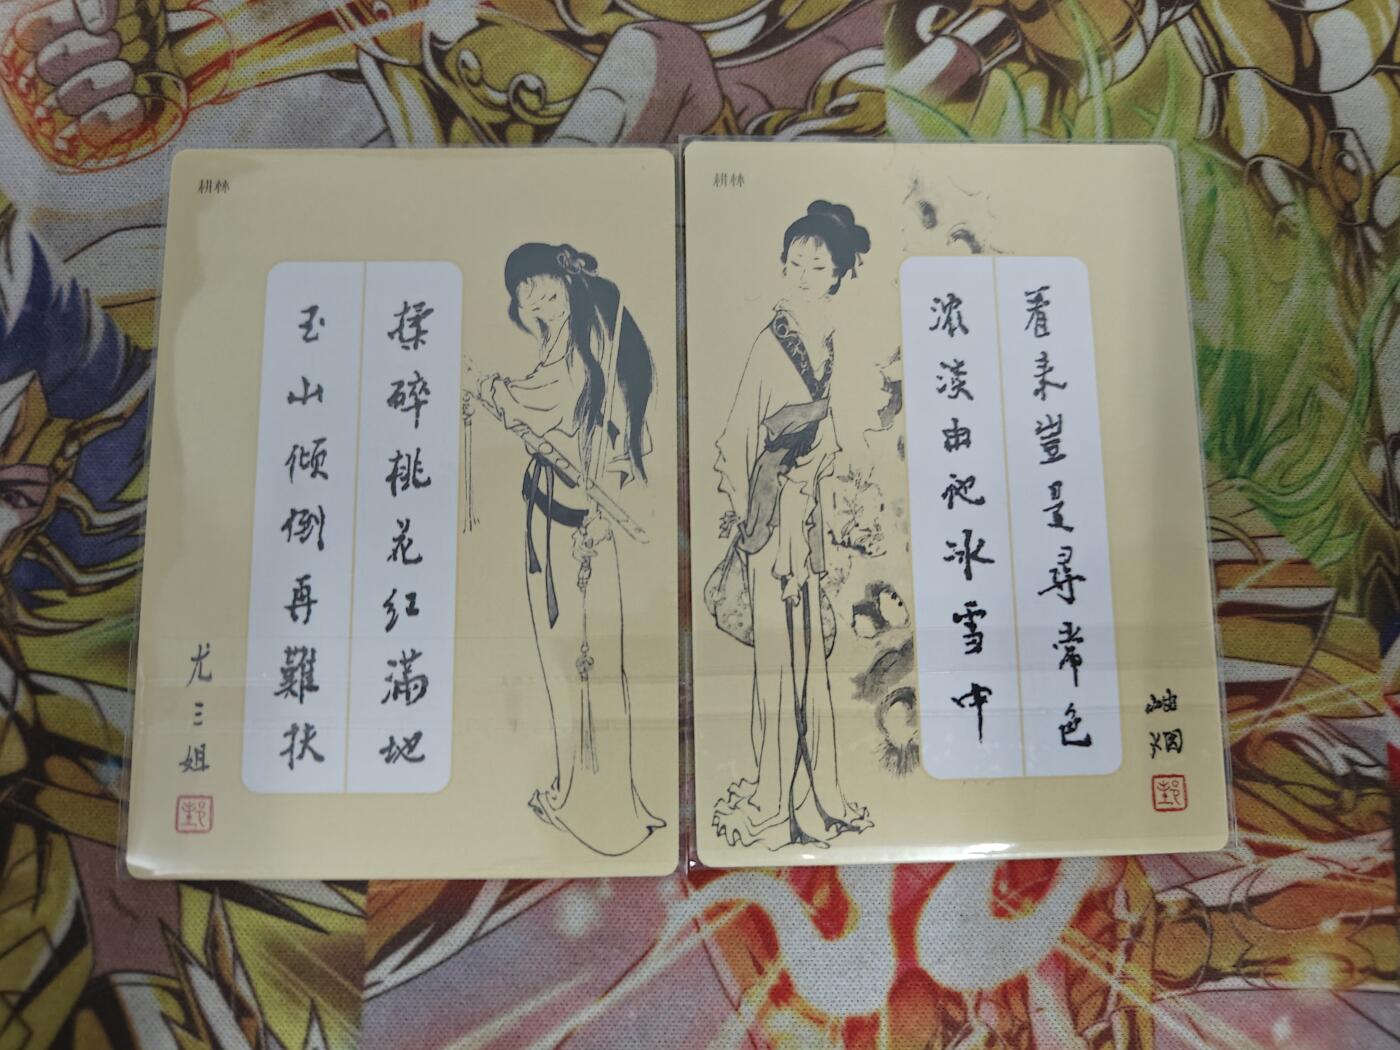 耕林
揉碎桃花红滿地
玉山倾倒再難扶
尤三姐
耕林
看来豈是尋常色
浓淡由他冰雪中
岫烟